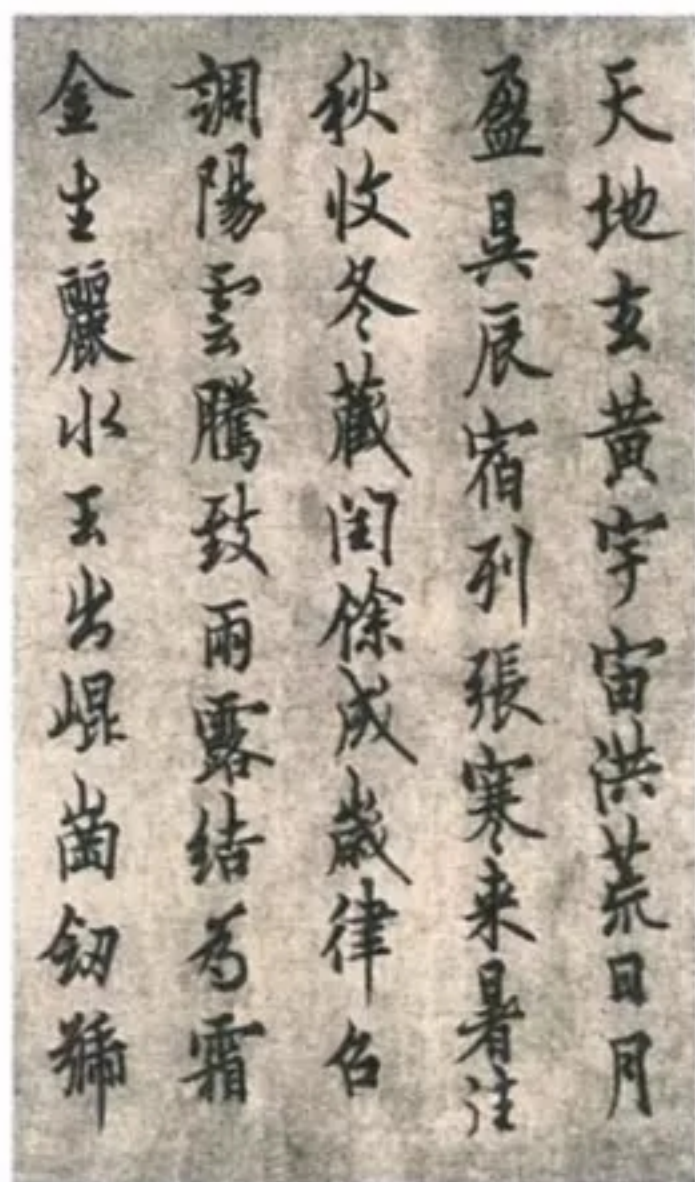 天地玄黃宇宙洪荒日月
盈昃辰宿列張寒来暑往
秋收冬藏閏餘成歲律召
調陽雲騰致雨露結為霜
金生麗水玉出崐崗劒號